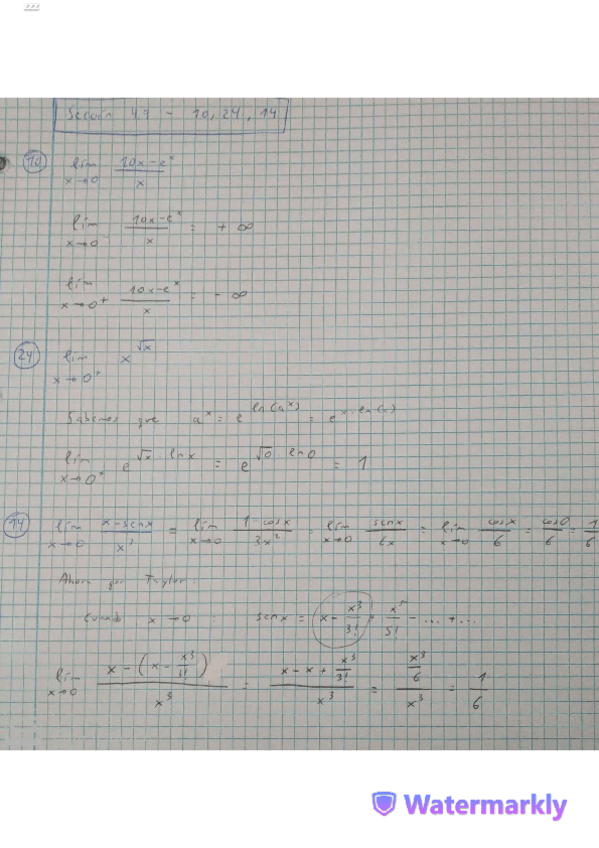 Sección 4.7 - 10, 24, 14
10 lím x→0 10x-e^x / x
lím x→0⁻ 10x-e^x / x = +∞
lím x→0⁺ 10x-e^x / x = -∞
24 lím x→0⁺ x^√x
Sabemos que a^x = e^ln(a^x) = e^x·ln(a)
lím x→0⁺ e^√x·lnx = e^√0·ln0 = 1
14 lím x→0 x-senx / x³ = lím x→0 1-cosx / 3x² = lím x→0 senx / 6x = lím x→0 cosx / 6 = cos0 / 6 = 1 / 6
Ahora por Taylor:
Cuando x→0 : senx = x - x³/3! + x⁵/5! - ... + ...
lím x→0 x-(x-x³/3!) / x³ = x-x+x³/3! / x³ = x³/6 / x³ = 1 / 6
Watermarkly